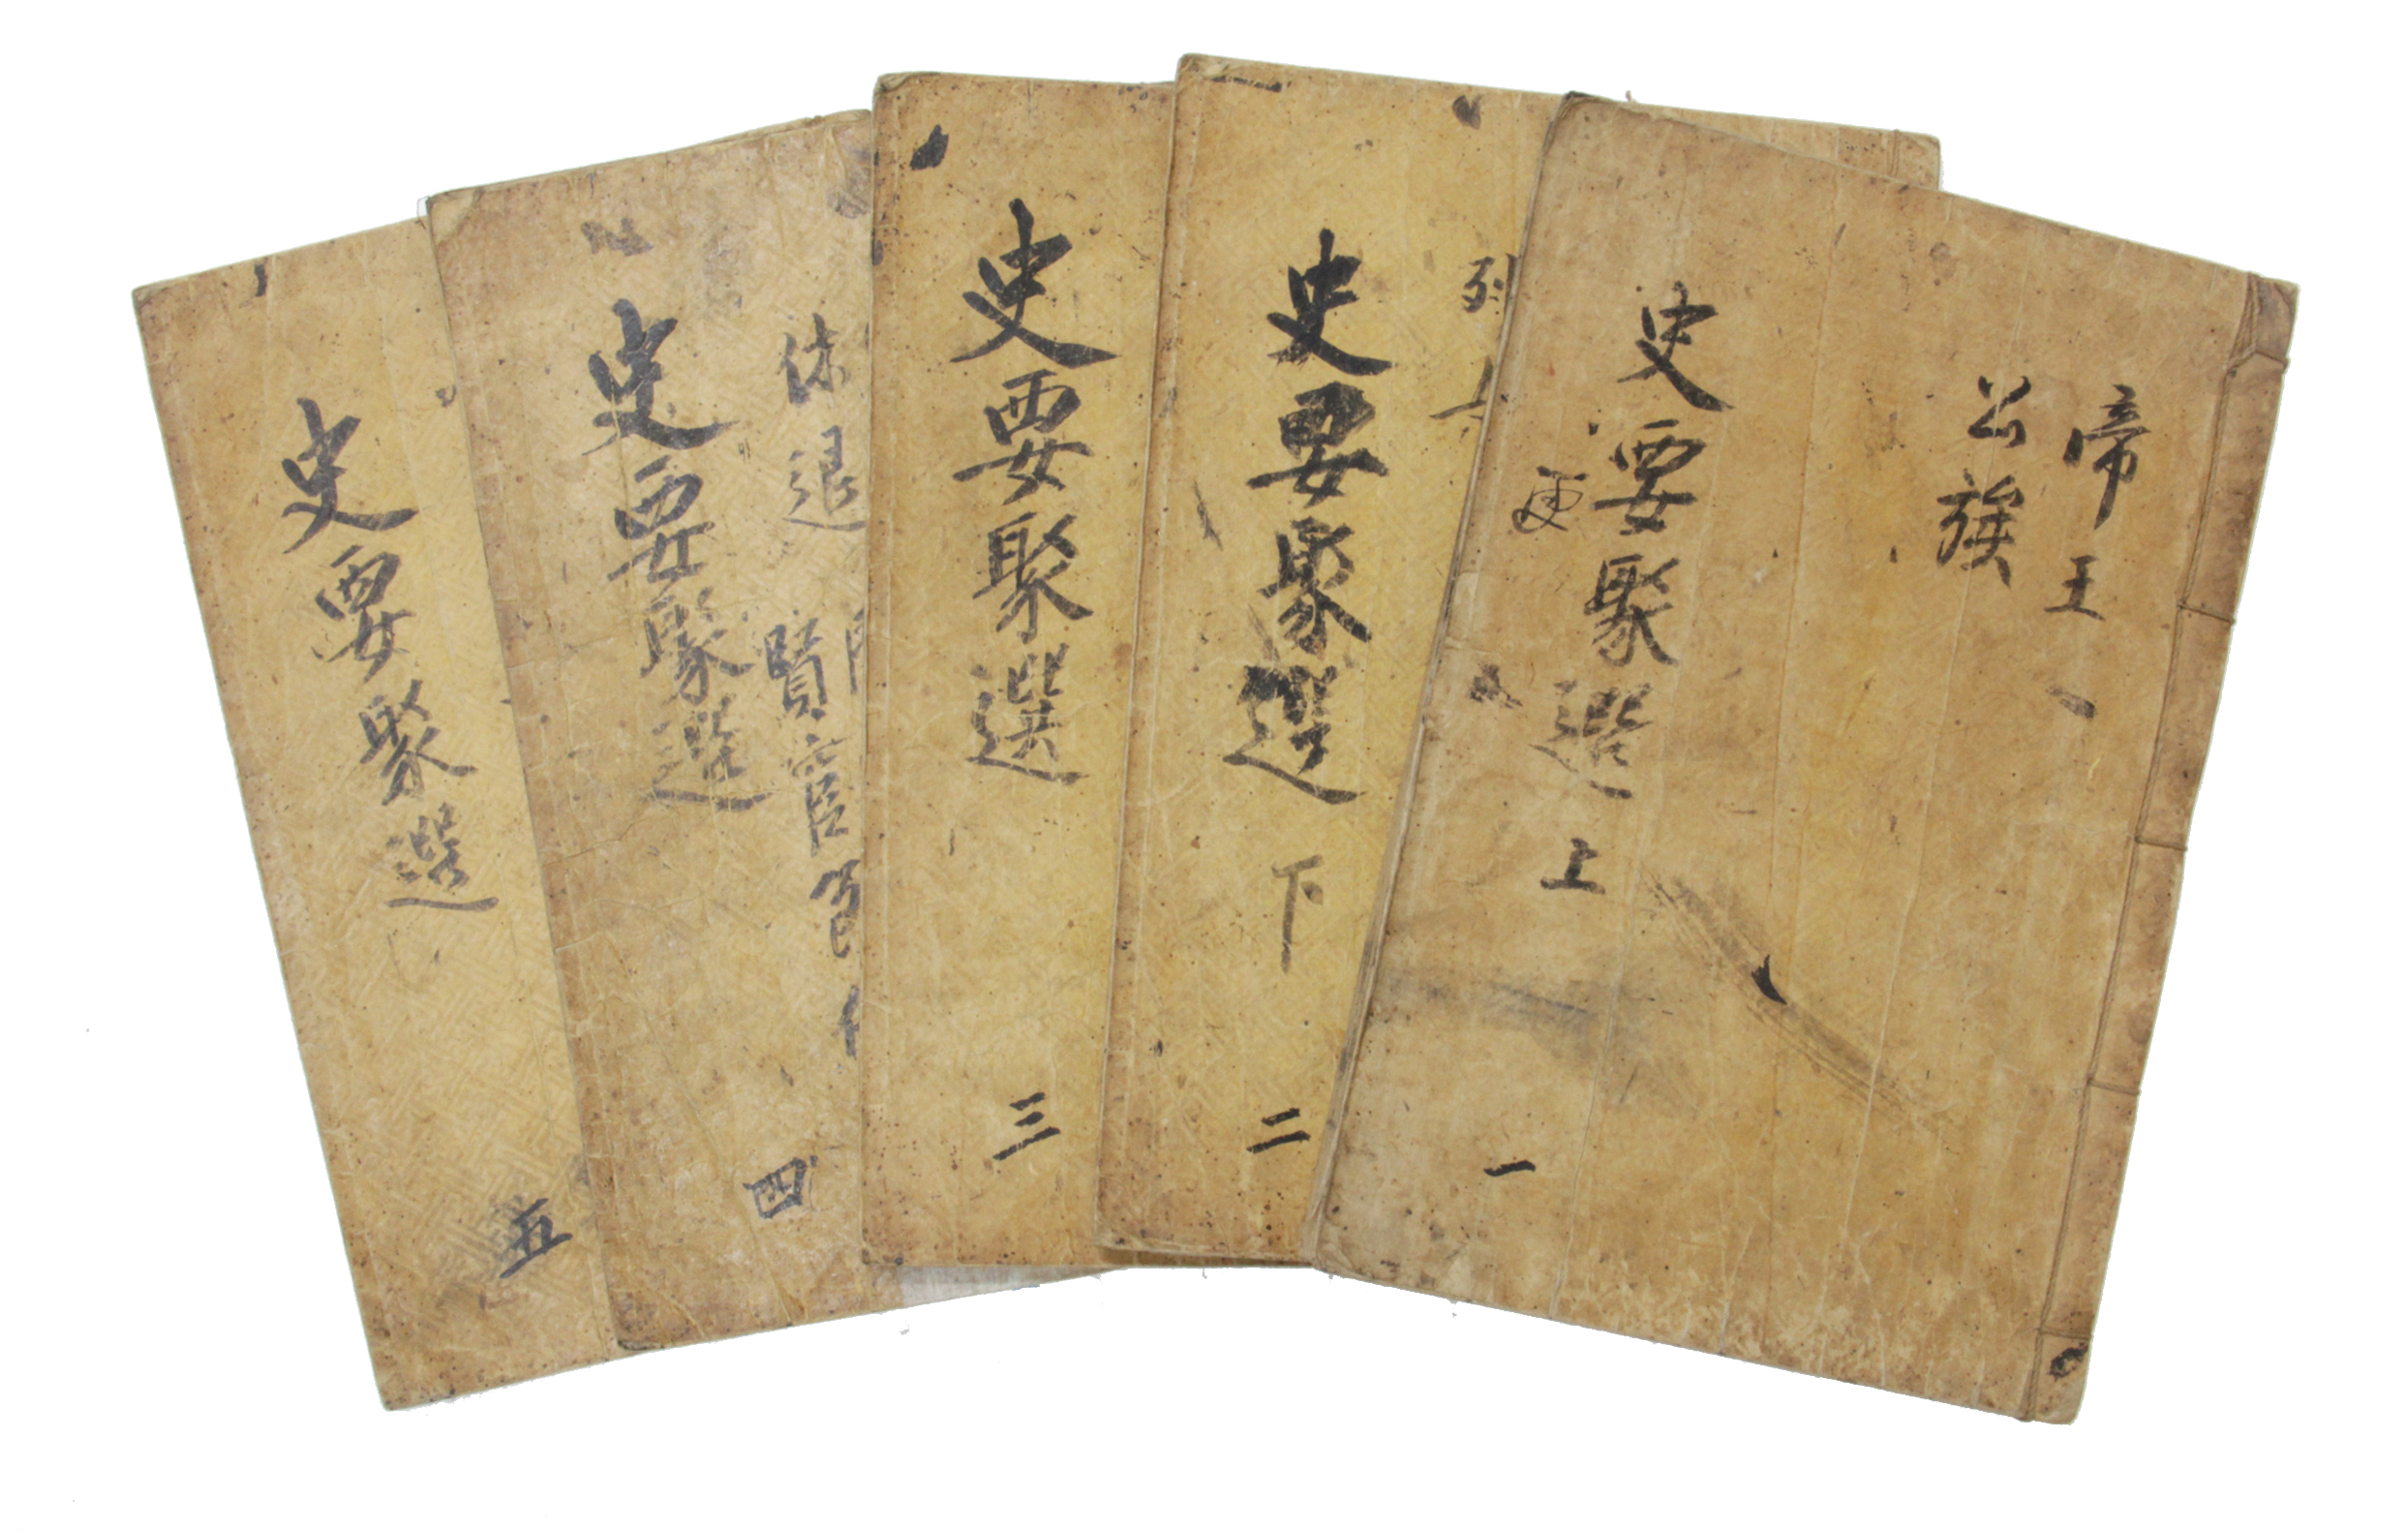 帝王
公族
史要聚選 上
一
史要聚選 下
二
史要聚選
三
休退
賢宦官
史要聚選
四
史要聚選
五